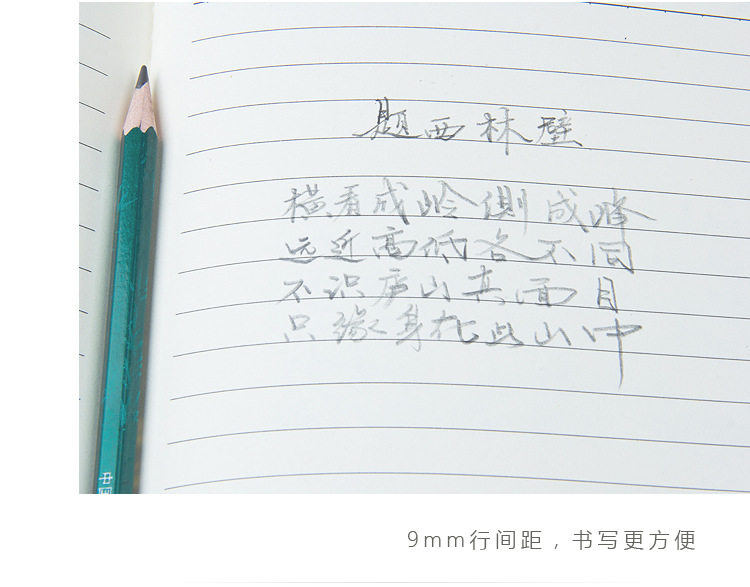 题西林壁
横看成岭侧成峰
远近高低各不同
不识庐山真面目
只缘身在此山中
丑
9mm行间距，书写更方便